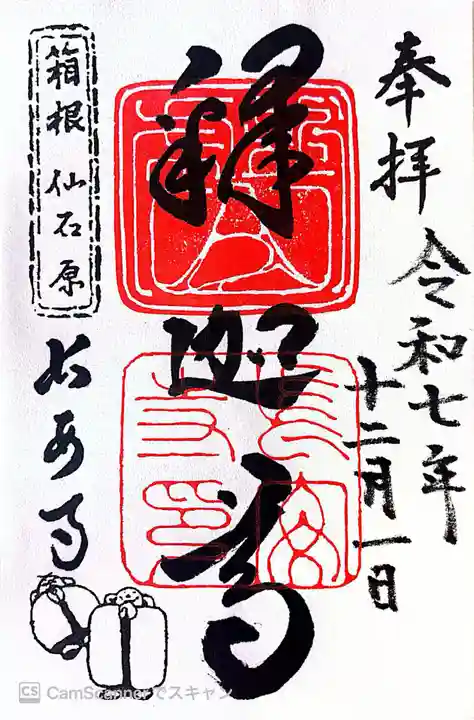 奉拝
令和七年
十二月一日
釋迦尊
箱根仙石原
長安寺
CS CamScannerでスキャン